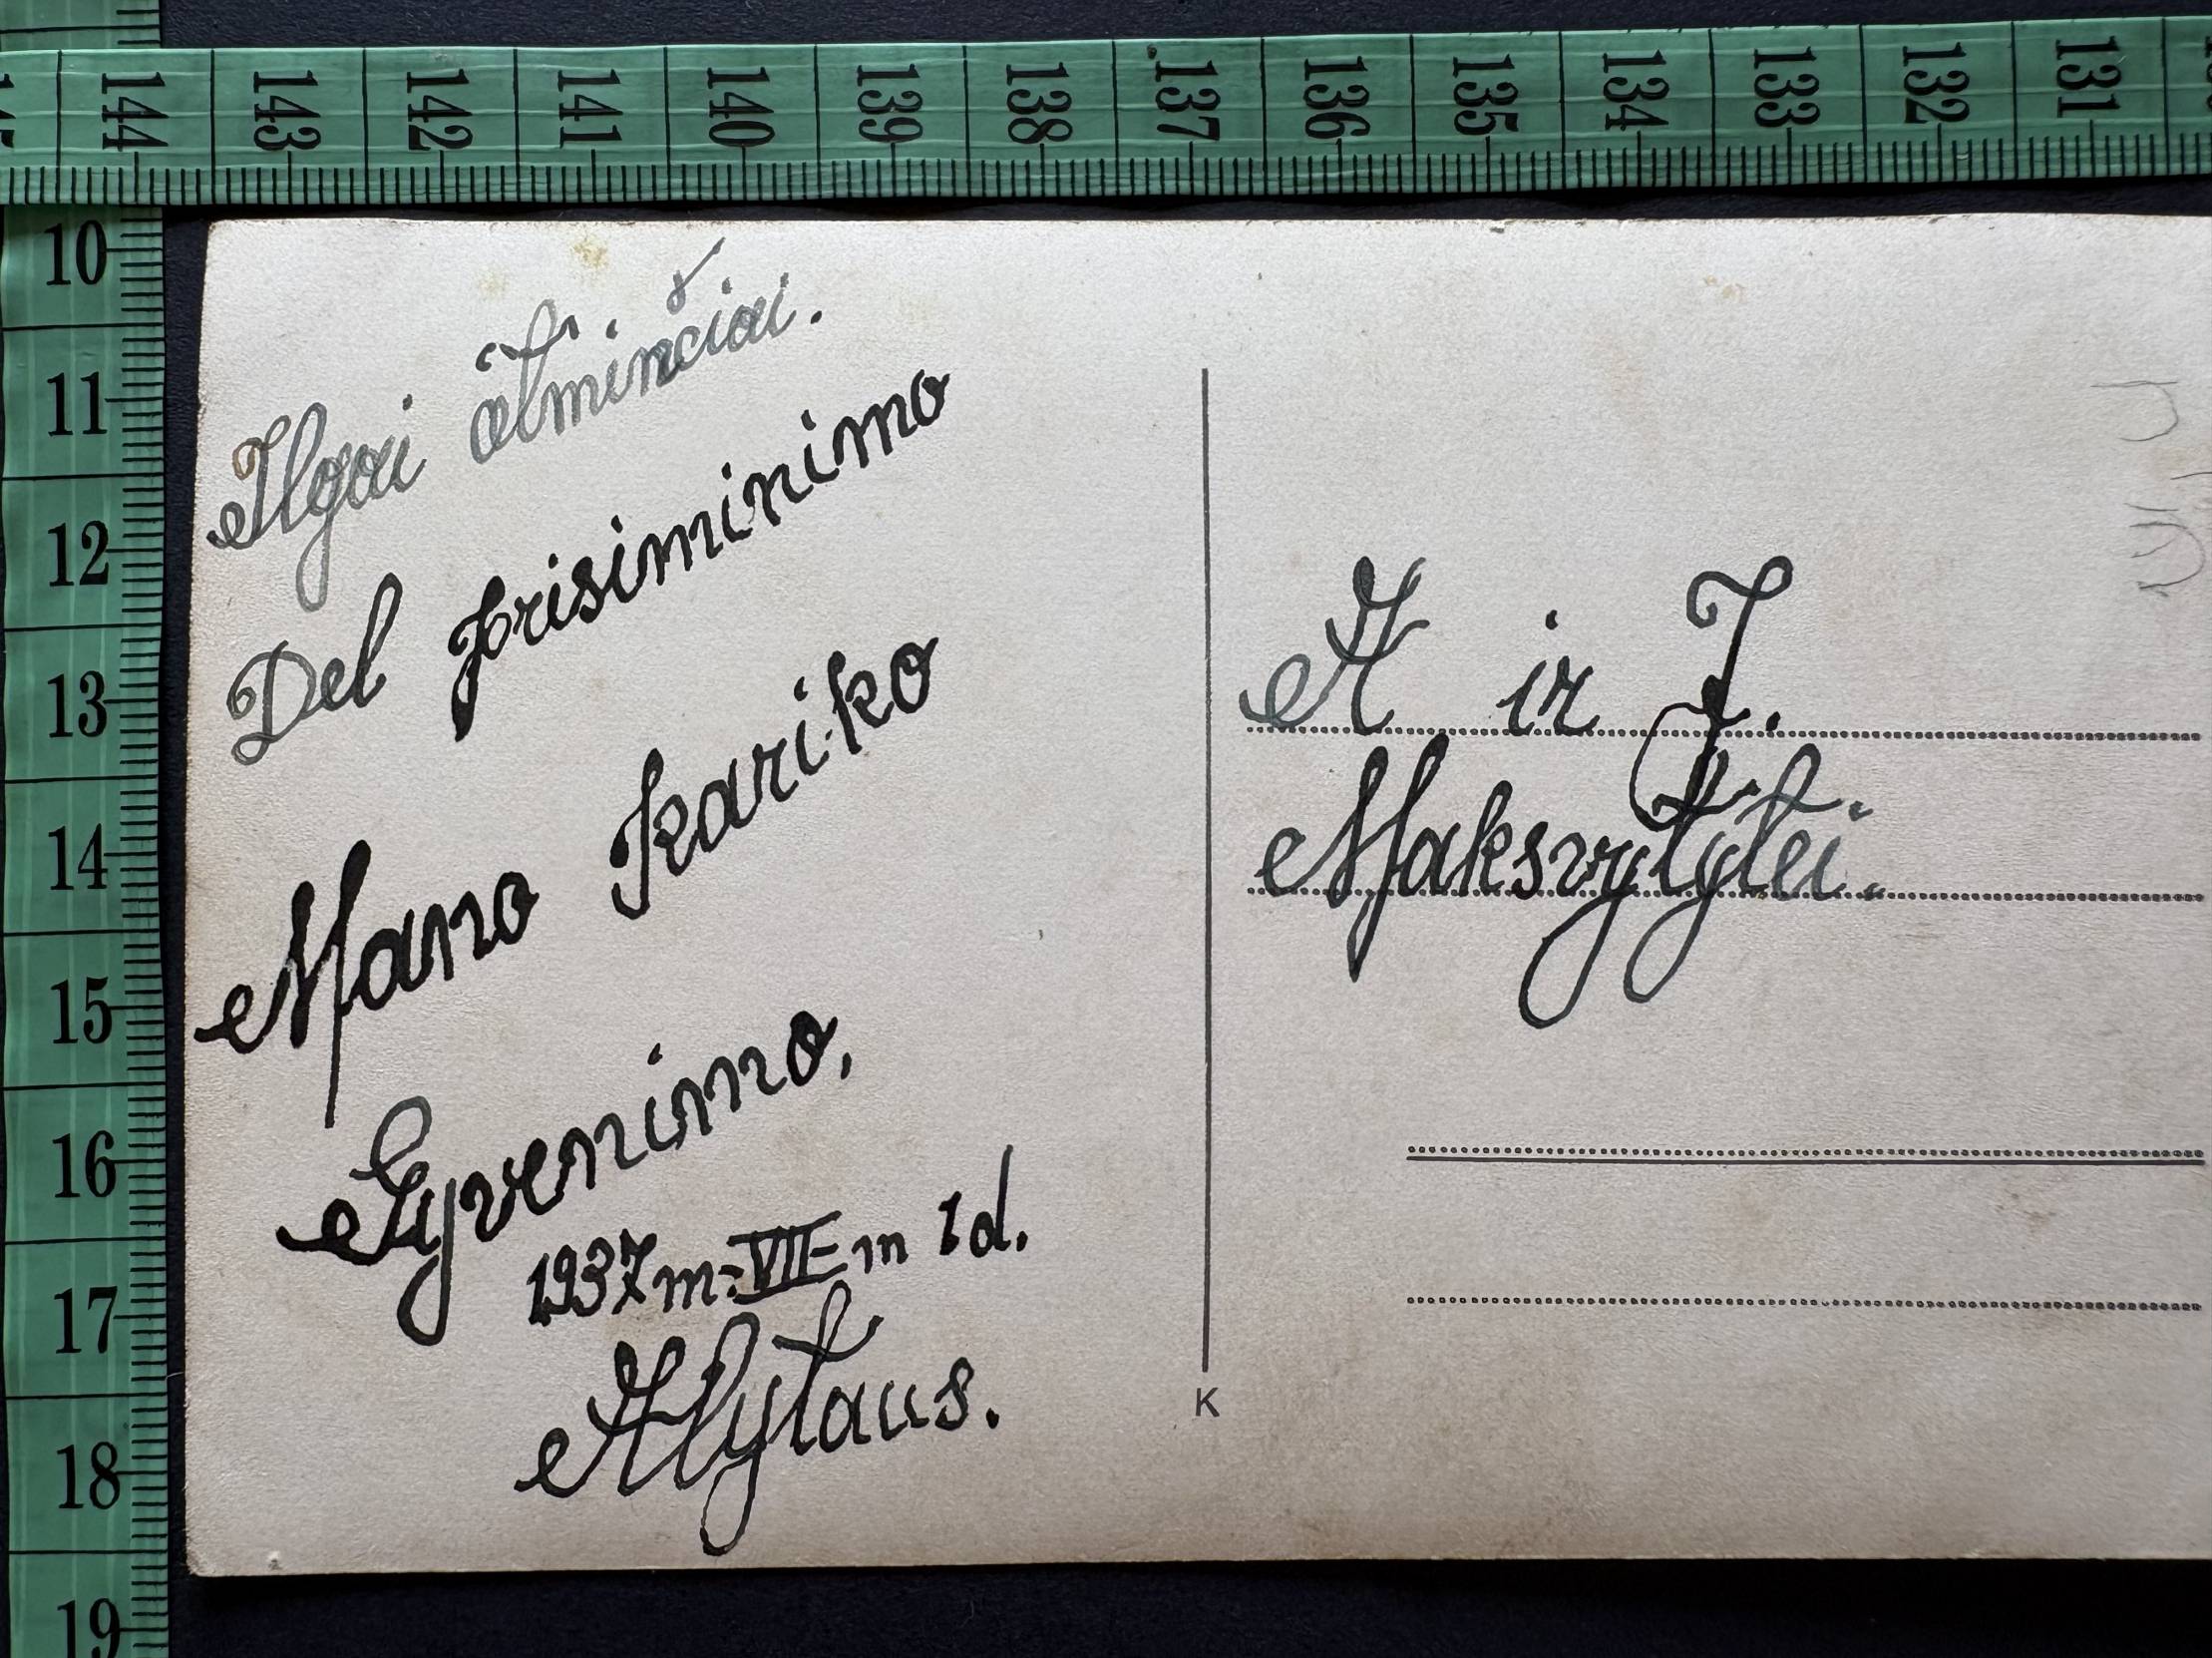 Ilgai atminčiai.
Del prisiminimo
Mano kariko
Gyvenimo,
1937m-VII-m 1d.
Alytaus.
K
A ir J.
Maksvytytei.
144 143 142 141 140 139 138 137 136 135 134 133 132 131
10
11
12
13
14
15
16
17
18
19